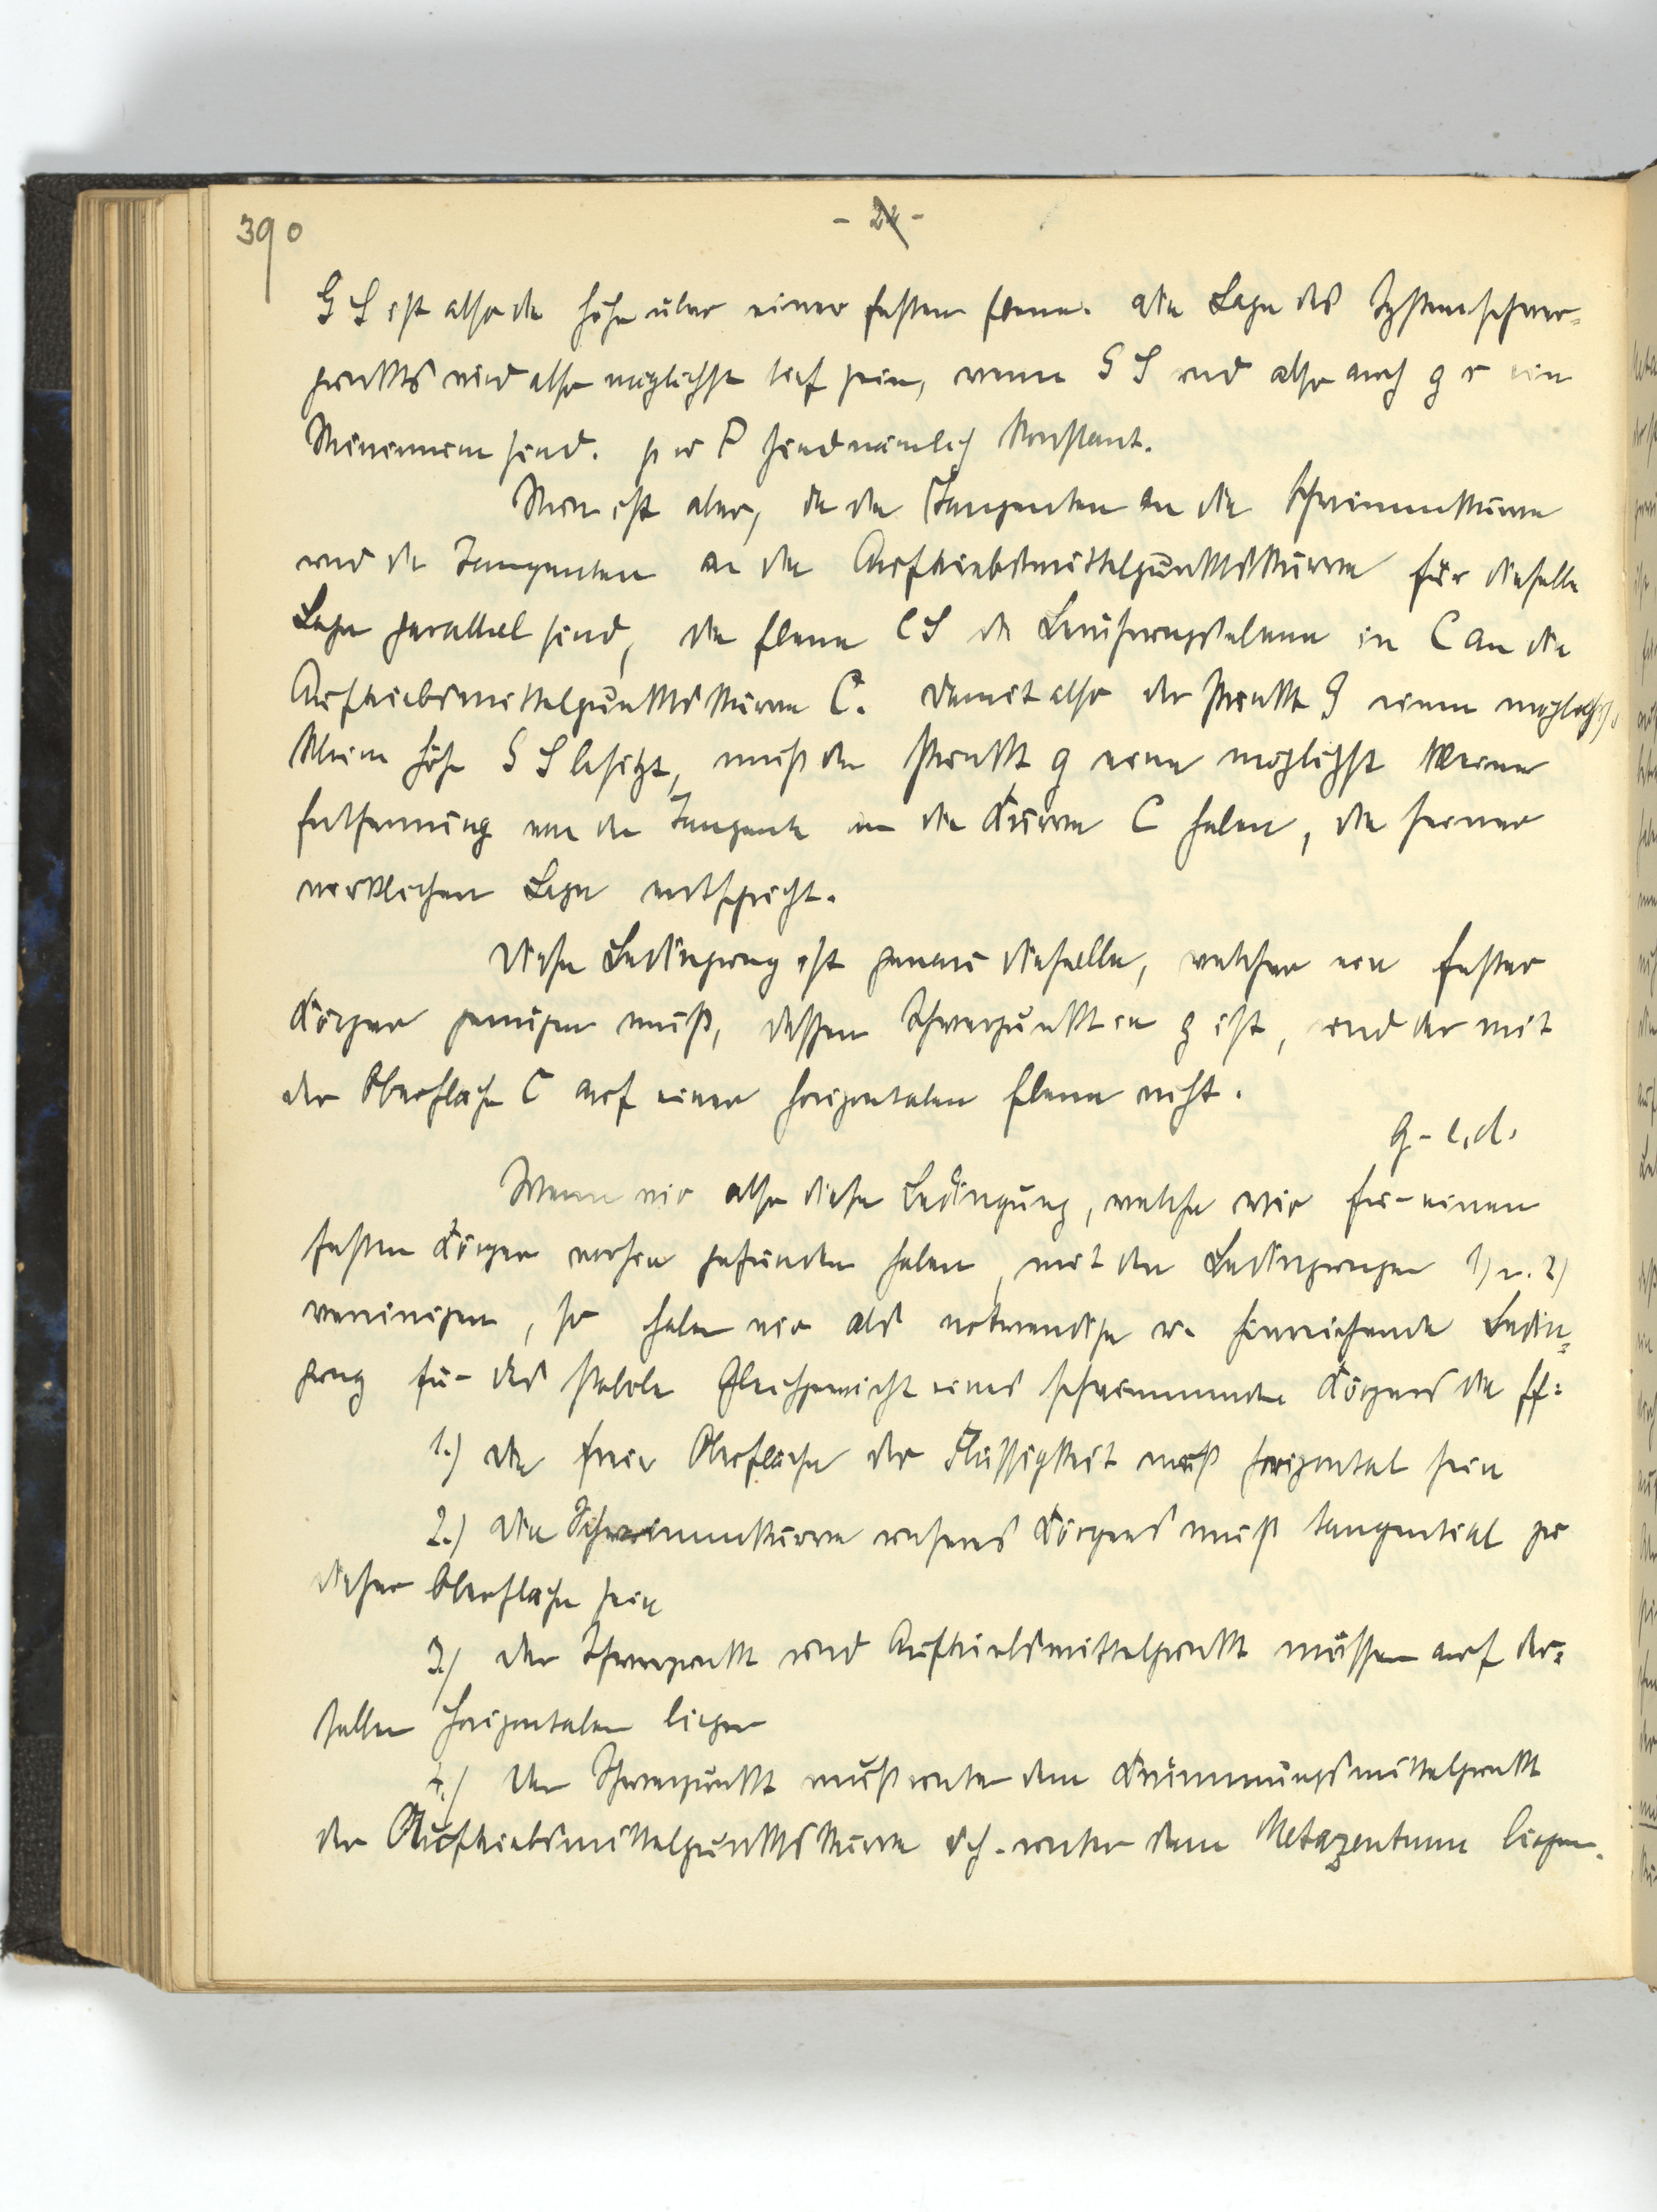 390
- 24 -
G S ist also die Höhe über einer festen Ebene. Die Lage des Systemschwer-
punkts wird also möglichst tief sein, wenn G S und also auch g r ein
Minimum sind. p u P sind nämlich konstant.
Nun ist aber, da die Tangenten an die Schwimmkurve
und die Tangenten an die Auftriebsmittelpunktskurve für dieselbe
Lage parallel sind, die Ebene C S die Berührungsebene in C an die
Auftriebsmittelpunktskurve C. Damit also der Punkt G eine möglichst
kleine Höhe G S besitzt, muß der Punkt g eine möglichst kleine
Entfernung von der Tangente an die Kurve C haben, die seiner
wirklichen Lage entspricht.
Diese Bedingung ist genau dieselbe, welcher ein fester
Körper genügen muß, dessen Schwerpunkt in g ist, und der mit
der Oberfläche C auf einer horizontalen Ebene ruht.
q-e.d.
Wenn wir also diese Bedingung, welche wir für einen
festen Körper vorhin gefunden haben, mit den Bedingungen 1) u. 2)
vereinigen, so haben wir als notwendige u. hinreichende Bedin-
gung für das stabile Gleichgewicht eines schwimmenden Körpers die ff:
1.) Die freie Oberfläche der Flüssigkeit muß horizontal sein
2.) Die Schwimmkurve unseres Körpers muß tangential zu
dieser Oberfläche sein
3.) Der Schwerpunkt und Auftriebsmittelpunkt müssen auf der-
selben Horizontalen liegen
4.) Der Schwerpunkt muß unter dem Krümmungsmittelpunkt
der Auftriebsmittelpunktskurve d.h. unter dem Metazentrum liegen.